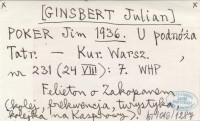 [GINSBERT Julian]
POKER Jim 1936. U podnóża
Tatr. — Kur. Warsz.,
nr 231 (24 VIII): 7. WHP
Felieton o Zakopanem
(kolej, frekwencja, turystyka,
kolejka na Kasprowy).